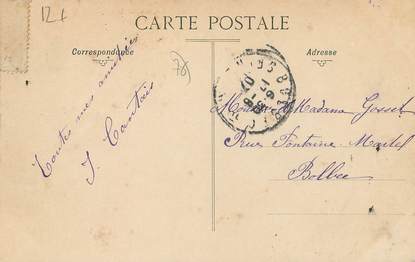 124
CARTE POSTALE
Correspondance
Adresse
Toutes mes amitiés
J. Contais
Monsieur Madame Gosset
Rue Fontaine-Martel
Bolbec